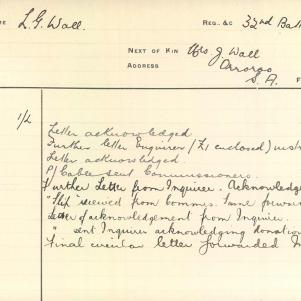 L. G. Wall.
REG. &C 32nd Batt
NEXT OF KIN Mrs. J. Wall
ADDRESS Orroroo
S. A.
1/L
Letter acknowledged
Further letter Enquirer (£1 enclosed)
Letter acknowledged.
P/Cable sent Commissioners.
Further Letter from Inquirer. Acknowledge
"Slip" received from Commrs. Same forwar
Letter of acknowledgement from Inquirer.
" sent Inquirer acknowledging donation
Final circular letter forwarded